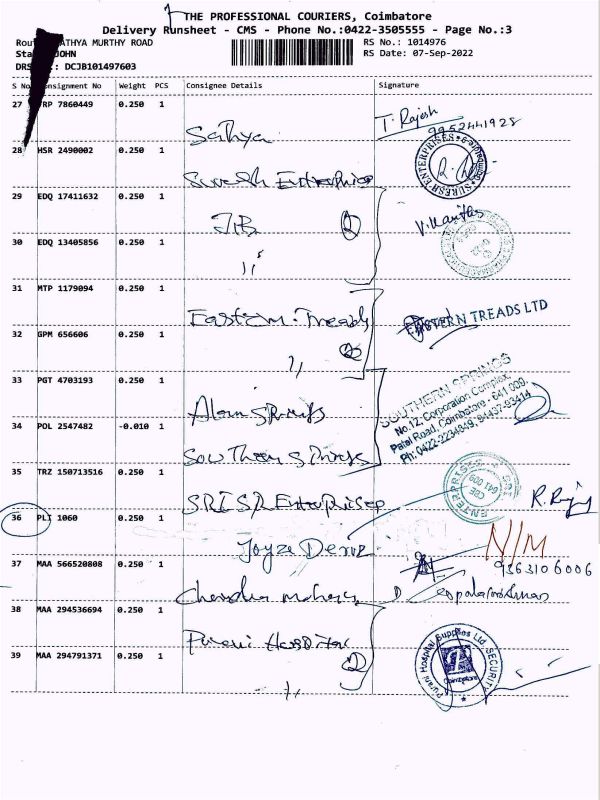 THE PROFESSIONAL COURIERS, Coimbatore
Delivery Runsheet - CMS - Phone No.:0422-3505555 - Page No.:3
ATHYA MURTHY ROAD
RS No.: 1014976
JOHN
RS Date: 07-Sep-2022
DCJB101497603
S No Consignment No Weight PCS Consignee Details Signature
27 7860449 0.250 1 Sathya T. Rajesh
9952441928
28 HSR 2490002 0.250 1 Suresh Enterprises SURESH ENTERPRISES
29 EDQ 17411632 0.250 1
30 EDQ 13405856 0.250 1 "
31 MTP 1179094 0.250 1 Eastern Treads EASTERN TREADS LTD
32 GPM 656606 0.250 1 "
33 PGT 4703193 0.250 1 SOUTHERN SPRINGS
No.12, Corporation Complex,
Patel Road, Coimbatore - 641 009.
Ph: 0422-2234949, 94437-93414
34 POL 2547482 -0.010 1 Southern Springs
35 TRZ 150713516 0.250 1 SRI SR Enterprises ENTERPRISES CBE 641 009
36 PLI 1060 0.250 1 N/M
37 MAA 566520808 0.250 1 9363106006
38 MAA 294536694 0.250 1 Purani Hospital Purani Hospital Supplies Ltd SECURITY Coimbatore
39 MAA 294791371 0.250 1 "